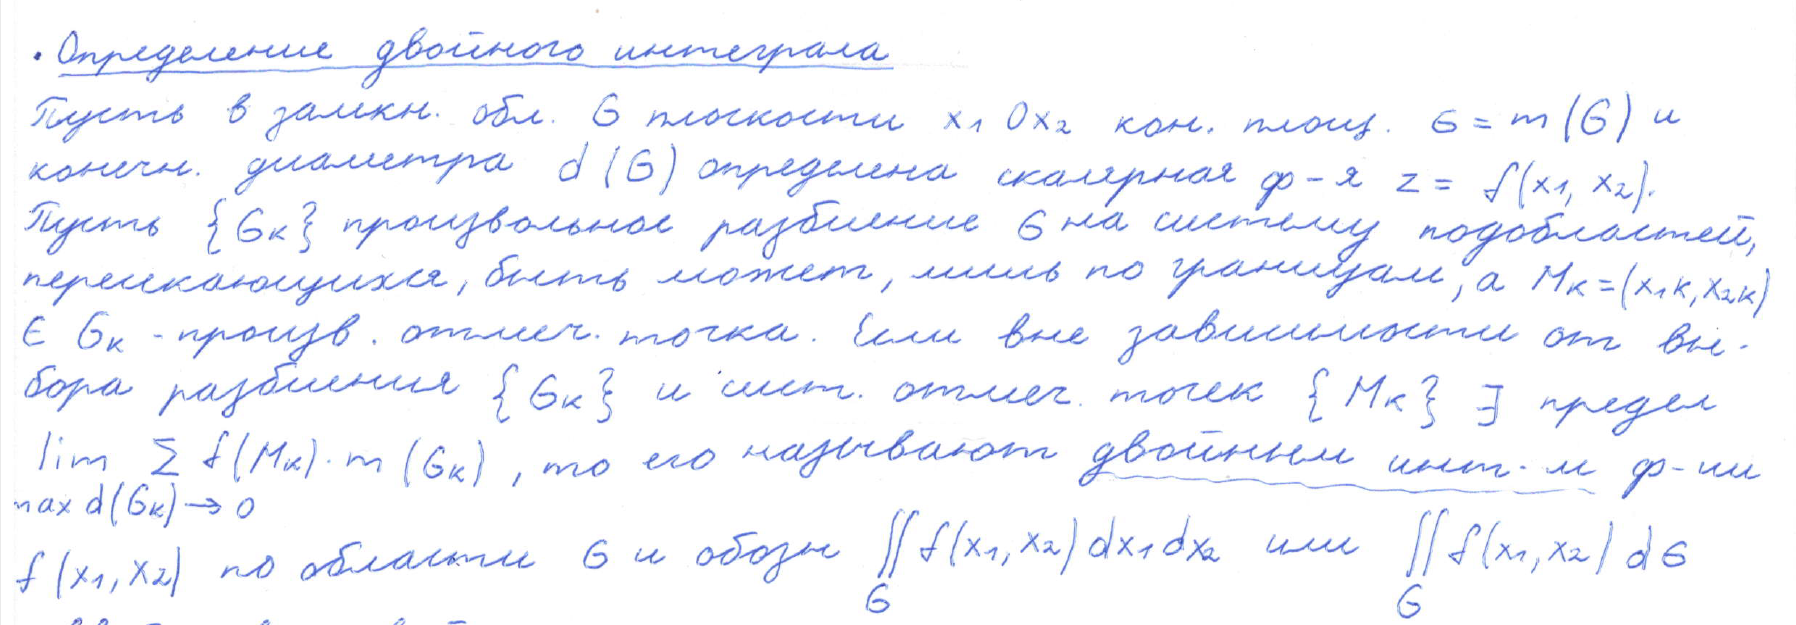 · Определение двойного интеграла
Пусть в замкн. обл. G плоскости x₁0x₂ кон. площ. G = m(G) и
конечн. диаметра d(G) определена скалярная ф-я z = f(x₁, x₂).
Пусть {Gк} произвольное разбиение G на систему подобластей,
пересекающихся, быть может, лишь по границам, а Mк=(x₁к, x₂к)
∈ Gк - произв. отмеч. точка. Если вне зависимости от вы-
бора разбиения {Gк} и сист. отмеч. точек {Mк} ∃ предел
lim Σ f(Mк)·m(Gк), то его называют двойным инт-м ф-ии
max d(Gк)→0
f(x₁, x₂) по области G и обозн ∬ f(x₁, x₂) dx₁dx₂ или ∬ f(x₁, x₂) dG
G G